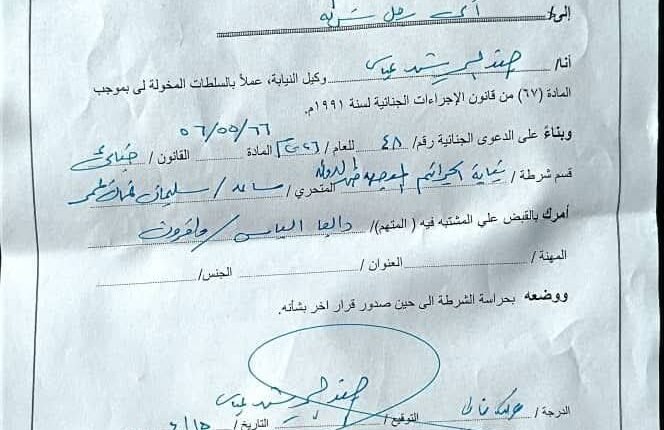 إلى/ أى رجل شرطة
أنا/ وكيل النيابة، عملاً بالسلطات المخولة لى بموجب
المادة (٦٧) من قانون الإجراءات الجنائية لسنة ١٩٩١م.
٥٦/٥٥/٢٦
وبناءً على الدعوى الجنائية رقم/ ٤٨ للعام / المادة القانون / جنائي
قسم شرطة / نيابة الجرائم الموجهة ضد الدولة المتحري / مساعد / سليمان
أمرك بالقبض علي المشتبه فيه ( المتهم)/ داليا الياس / وآخرون
المهنة / العنوان / الجنس/
ووضعه بحراسة الشرطة الى حين صدور قرار اخر بشأنه.
الدرجة / التوقيع / التاريخ /